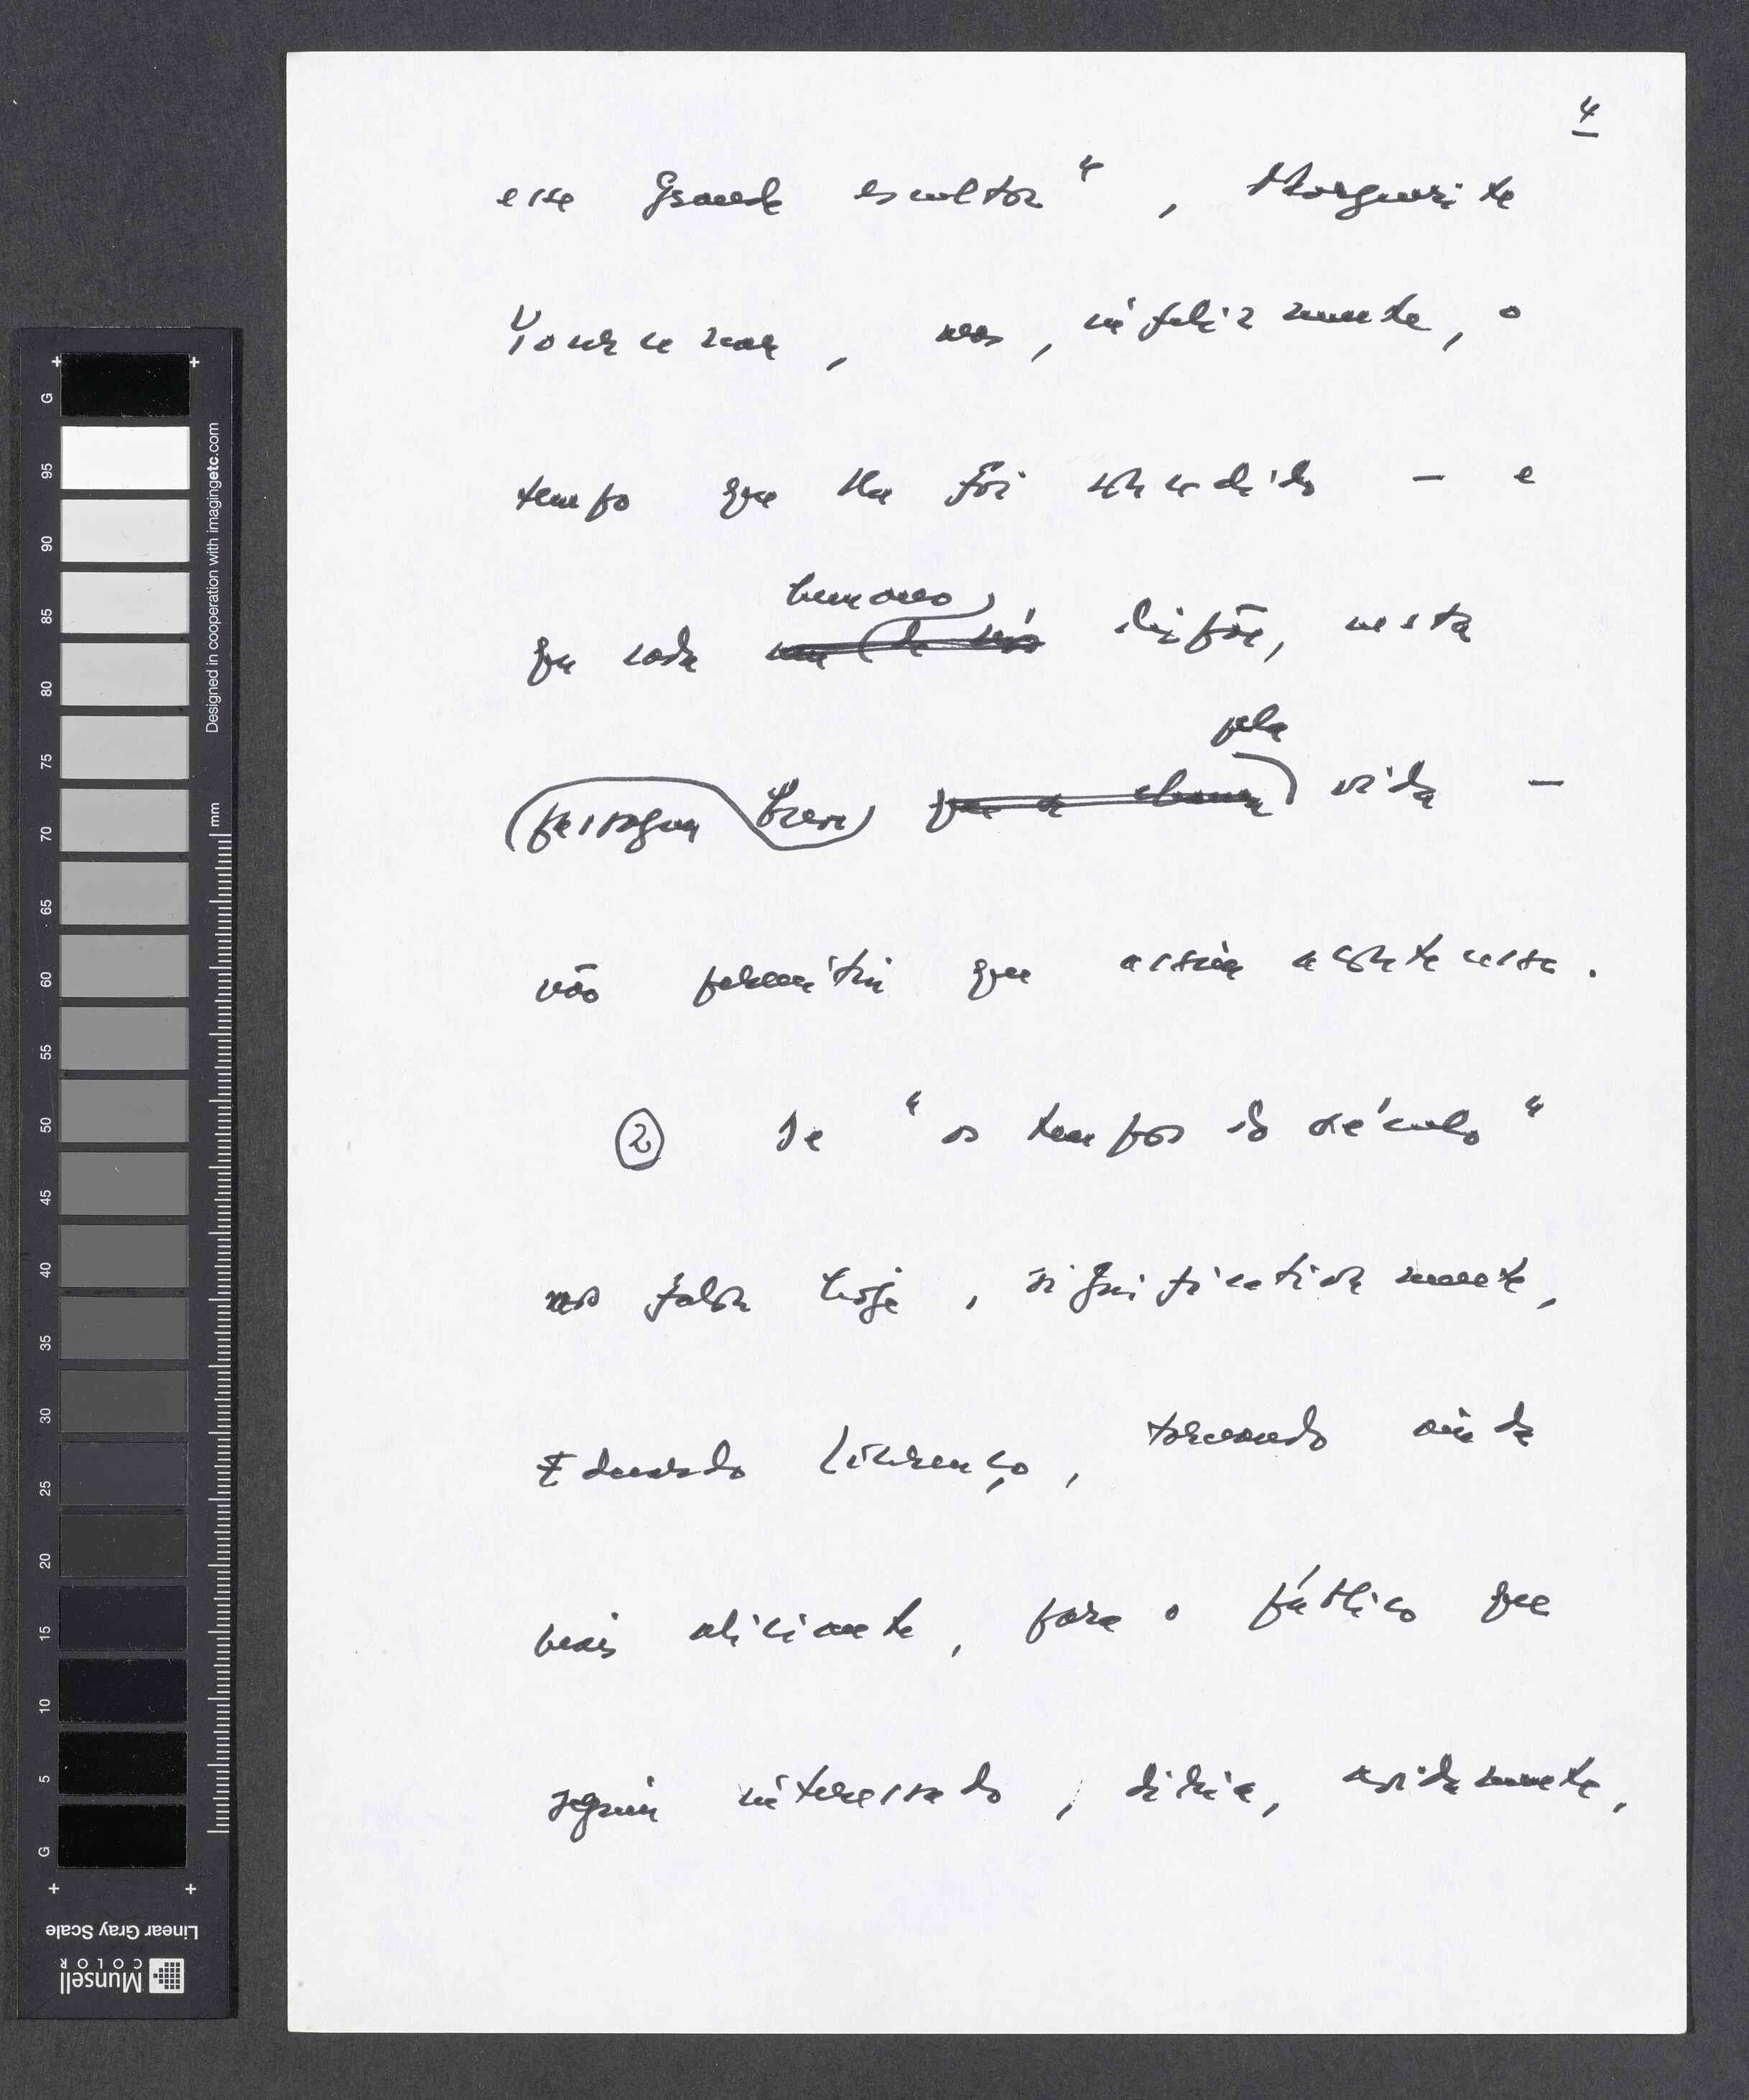 4
esse Grande escultor", Marguerite
Yourcenar, mas, infelizmente, o
tempo que lhe foi concedido - e
humano
que cada um de nós dispõe, nesta
pela
(passagem breve) vida -
não permitiu que assim acontecesse.
② De "os tempos do século"
nos falou hoje, significativamente,
Eduardo Lourenço, tornando ainda
mais aliciante, para o público que
seguiu interessado, diria, avidamente,
G 95 90 85 80 75 70 65 60 55 50 45 40 35 30 25 20 15 10 5 G
mm
Designed in cooperation with imagingetc.com
Linear Gray Scale
Munsell
COLOR